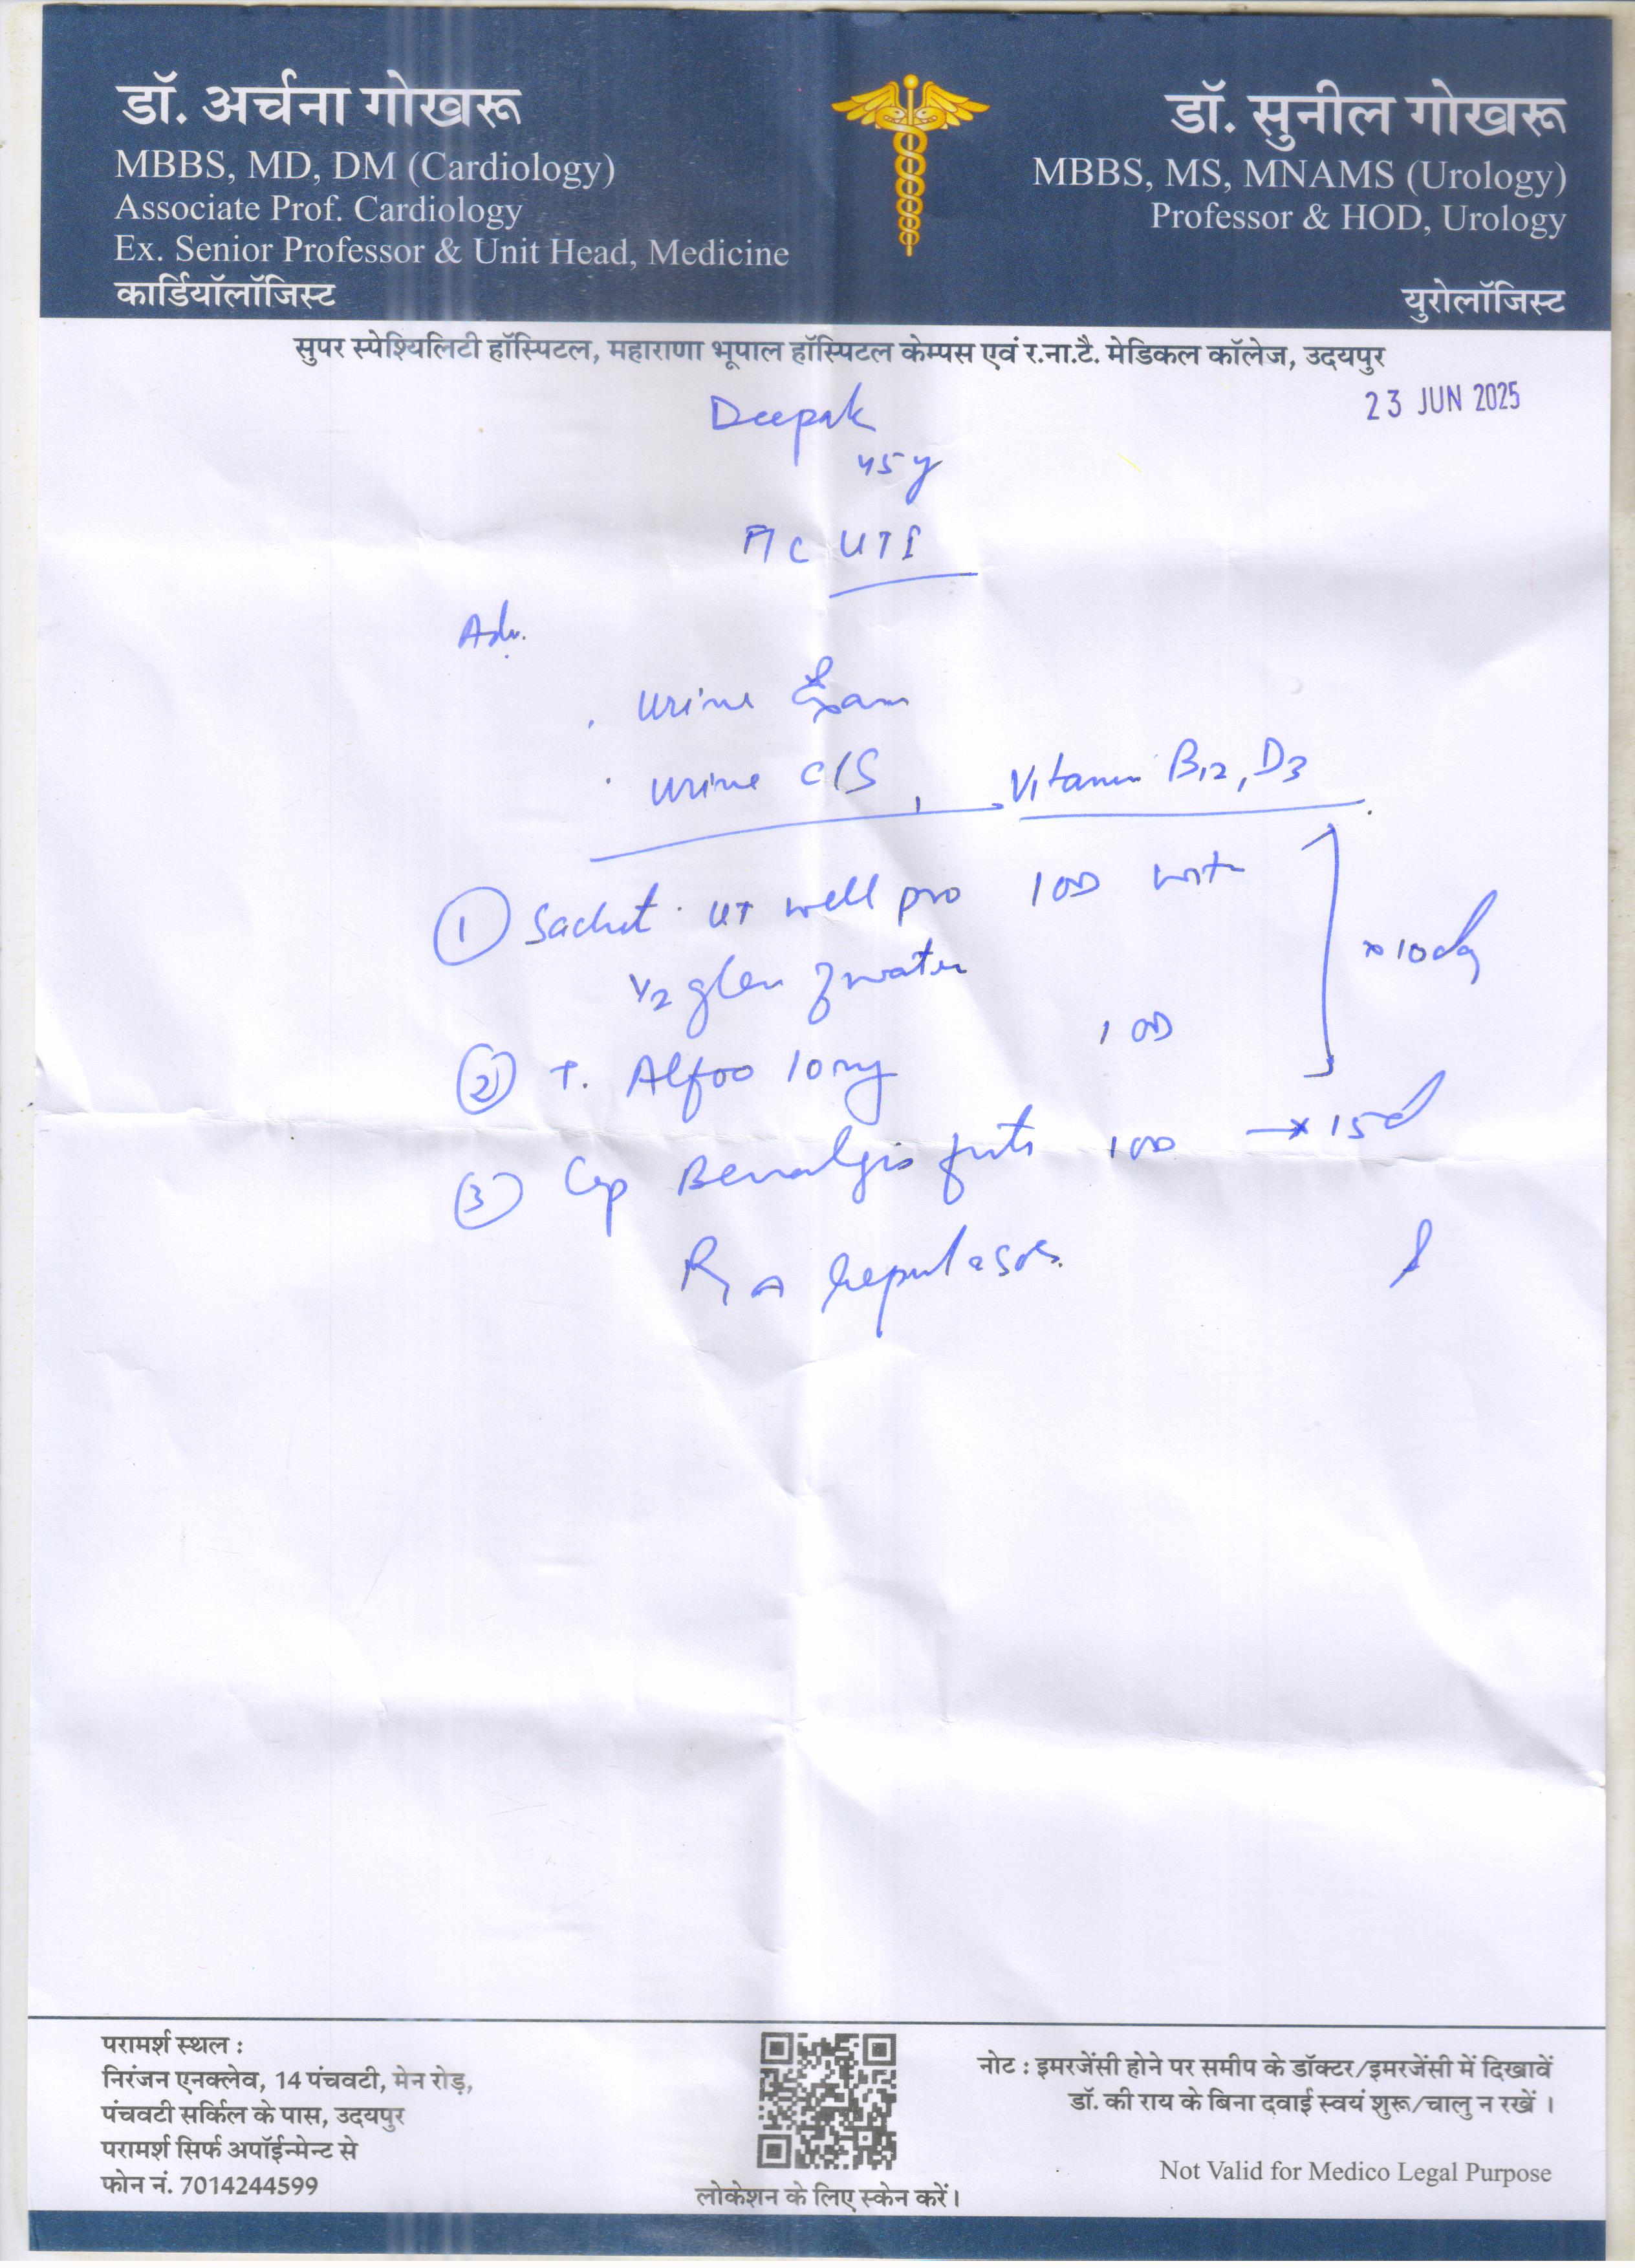 डॉ. अर्चना गोखरू
MBBS, MD, DM (Cardiology)
Associate Prof. Cardiology
Ex. Senior Professor & Unit Head, Medicine
कार्डियॉलॉजिस्ट
डॉ. सुनील गोखरू
MBBS, MS, MNAMS (Urology)
Professor & HOD, Urology
युरोलॉजिस्ट
सुपर स्पेश्यिलिटी हॉस्पिटल, महाराणा भूपाल हॉस्पिटल केम्पस एवं र.ना.टै. मेडिकल कॉलेज, उदयपुर
23 JUN 2025
Deepak
45 y
UTI
Adv.
. Urine Exam
. Urine C/S, Vitamin B12, D3
① Sachet UT well pro 1 OD with
1/2 glass of water
x 10 day
② T. Alfoo 10mg 1 OD
③ Cap Benalgis forte 1 OD → x 15d
R
परामर्श स्थल :
निरंजन एनक्लेव, 14 पंचवटी, मेन रोड़,
पंचवटी सर्किल के पास, उदयपुर
परामर्श सिर्फ अपॉईन्मेन्ट से
फोन नं. 7014244599
लोकेशन के लिए स्केन करें।
नोट : इमरजेंसी होने पर समीप के डॉक्टर/इमरजेंसी में दिखावें
डॉ. की राय के बिना दवाई स्वयं शुरू/चालु न रखें ।
Not Valid for Medico Legal Purpose